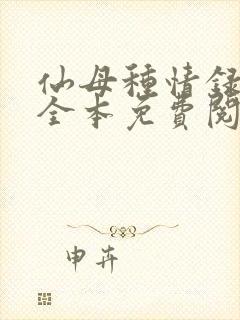 仙母種情録
全本免費閱
申卉